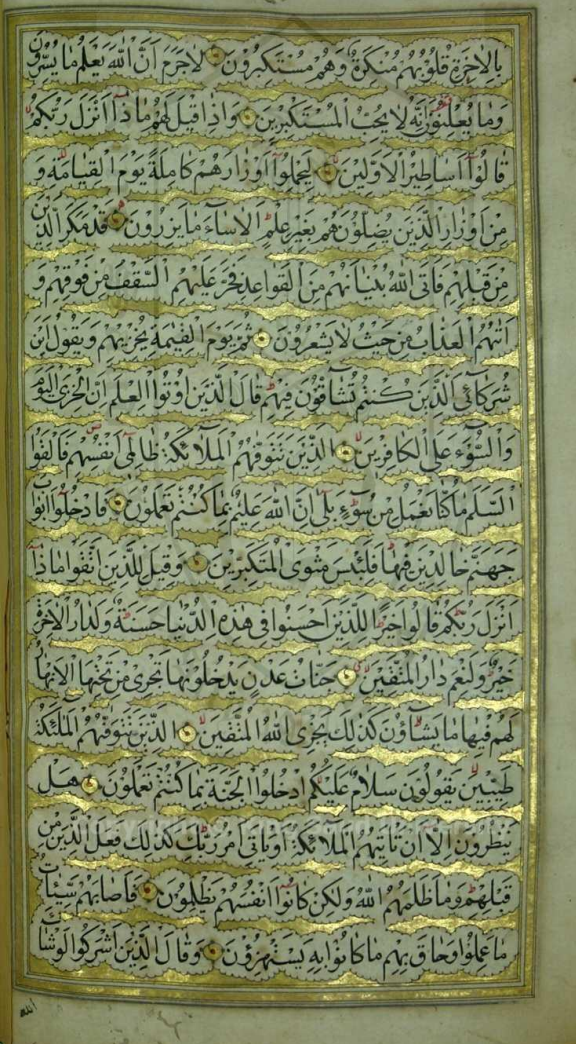 بِالْآخِرَةِ قُلُوبُهُمْ مُنْكِرَةٌ وَهُمْ مُسْتَكْبِرُونَ لَاجَرَمَ اَنَّ اللّٰهَ يَعْلَمُ مَا يُسِرُّونَ
وَمَا يُعْلِنُونَ اِنَّهُ لَا يُحِبُّ الْمُسْتَكْبِرِينَ وَاِذَا قِيلَ لَهُمْ مَاذَٓا اَنْزَلَ رَبُّكُمْ
قَالُٓوا اَسَاطِيرُ الْاَوَّلِينَ لِيَحْمِلُٓوا اَوْزَارَهُمْ كَامِلَةً يَوْمَ الْقِيَامَةِ وَ
مِنْ اَوْزَارِ الَّذِينَ يُضِلُّونَهُمْ بِغَيْرِ عِلْمٍ اَلَا سَٓاءَ مَا يَزِرُونَ قَدْ مَكَرَ الَّذِينَ
مِنْ قَبْلِهِمْ فَاَتَى اللّٰهُ بُنْيَانَهُمْ مِنَ الْقَوَاعِدِ فَخَرَّ عَلَيْهِمُ السَّقْفُ مِنْ فَوْقِهِمْ وَ
اَتٰيهُمُ الْعَذَابُ مِنْ حَيْثُ لَا يَشْعُرُونَ ثُمَّ يَوْمَ الْقِيٰمَةِ يُخْزِيهِمْ وَيَقُولُ اَيْنَ
شُرَكَٓائِىَ الَّذِينَ كُنْتُمْ تُشَٓاقُّونَ فِيهِمْ قَالَ الَّذِينَ اُوتُوا الْعِلْمَ اِنَّ الْخِزْىَ الْيَوْمَ
وَالسُّٓوءَ عَلَى الْكَافِرِينَ الَّذِينَ تَتَوَفّٰيهُمُ الْمَلٰٓئِكَةُ ظَالِمِٓى اَنْفُسِهِمْ فَاَلْقَوُا
السَّلَمَ مَا كُنَّا نَعْمَلُ مِنْ سُٓوءٍ بَلٰٓى اِنَّ اللّٰهَ عَلِيمٌ بِمَا كُنْتُمْ تَعْمَلُونَ فَادْخُلُٓوا اَبْوَابَ
جَهَنَّمَ خَالِدِينَ فِيهَا فَلَبِئْسَ مَثْوَى الْمُتَكَبِّرِينَ وَقِيلَ لِلَّذِينَ اتَّقَوْا مَاذَٓا
اَنْزَلَ رَبُّكُمْ قَالُوا خَيْرًا لِلَّذِينَ اَحْسَنُوا فِى هٰذِهِ الدُّنْيَا حَسَنَةٌ وَلَدَارُ الْاٰخِرَةِ
خَيْرٌ وَلَنِعْمَ دَارُ الْمُتَّقِينَ جَنَّاتُ عَدْنٍ يَدْخُلُونَهَا تَجْرِى مِنْ تَحْتِهَا الْاَنْهَارُ
لَهُمْ فِيهَا مَا يَشَٓاؤُنَ كَذٰلِكَ يَجْزِى اللّٰهُ الْمُتَّقِينَ الَّذِينَ تَتَوَفّٰيهُمُ الْمَلٰٓئِكَةُ
طَيِّبِينَ يَقُولُونَ سَلَامٌ عَلَيْكُمُ ادْخُلُوا الْجَنَّةَ بِمَا كُنْتُمْ تَعْمَلُونَ هَلْ
يَنْظُرُونَ اِلَّٓا اَنْ تَاْتِيَهُمُ الْمَلٰٓئِكَةُ اَوْ يَاْتِىَ اَمْرُ رَبِّكَ كَذٰلِكَ فَعَلَ الَّذِينَ مِنْ
قَبْلِهِمْ وَمَا ظَلَمَهُمُ اللّٰهُ وَلٰكِنْ كَانُٓوا اَنْفُسَهُمْ يَظْلِمُونَ فَاَصَابَهُمْ سَيِّـَٔاتُ
مَا عَمِلُوا وَحَاقَ بِهِمْ مَا كَانُوا بِهِ يَسْتَهْزِؤُنَ وَقَالَ الَّذِينَ اَشْرَكُوا لَوْ شَٓاءَ
اللّٰه